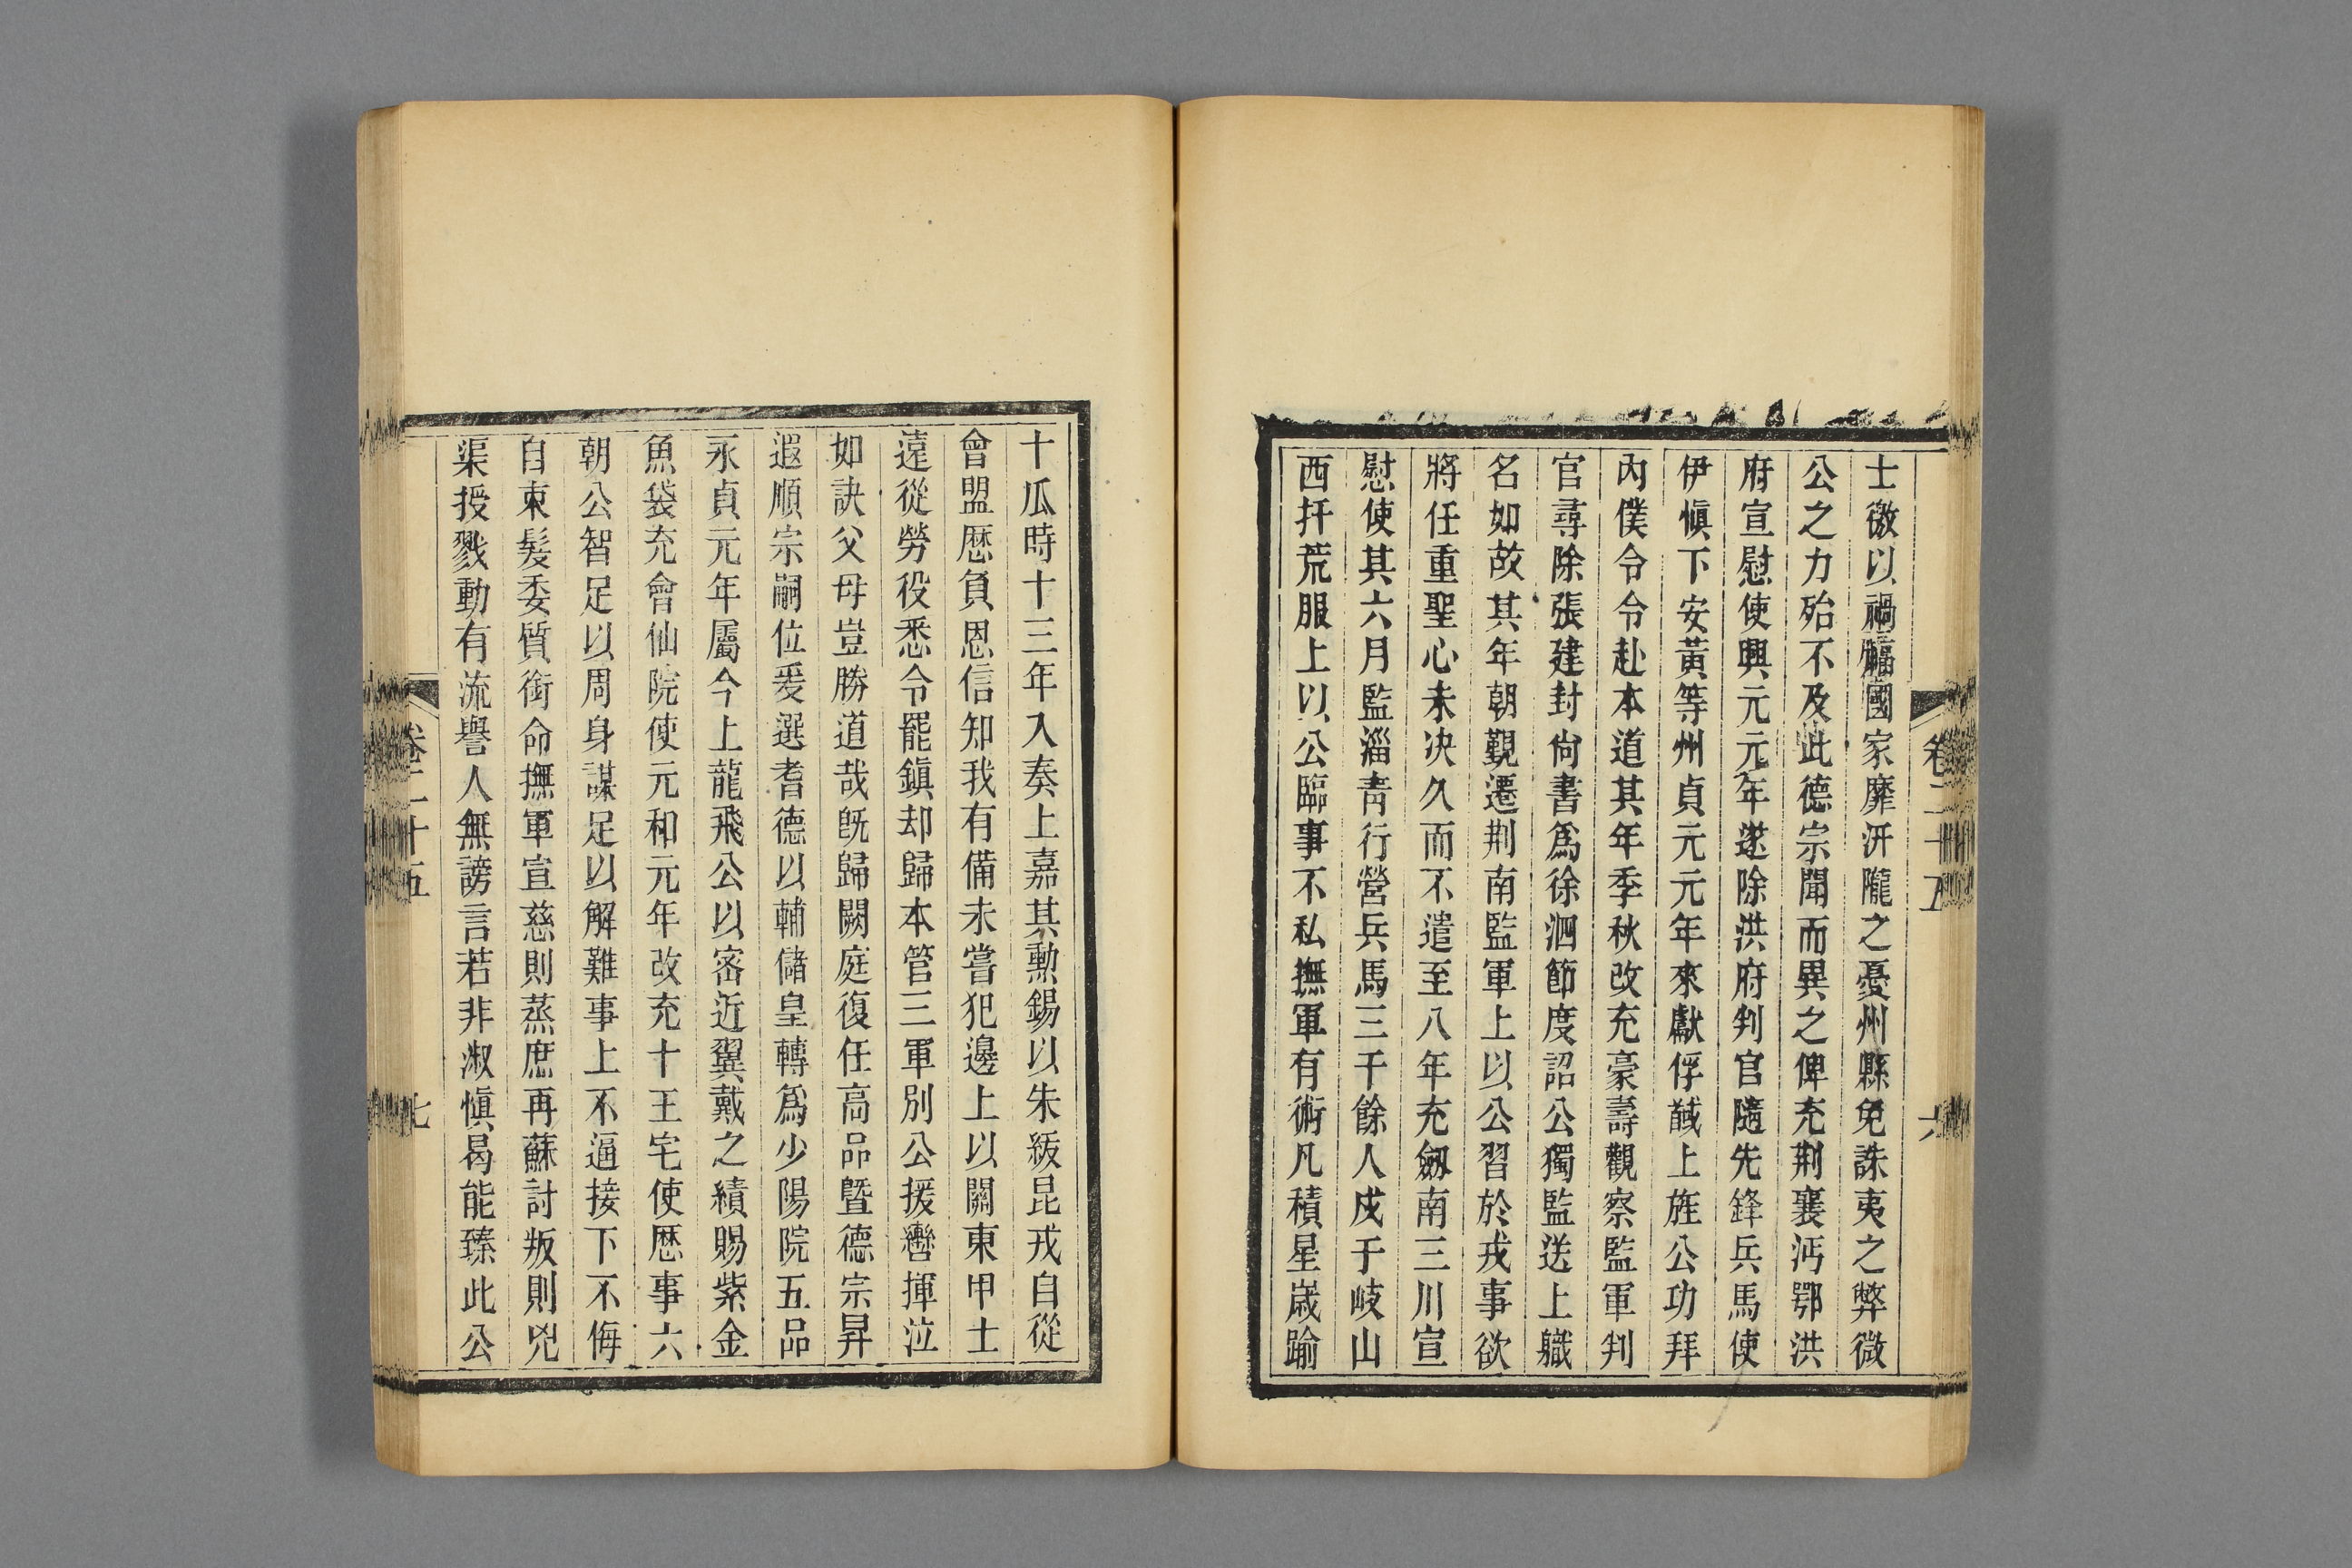 士徼以禍福國家靡汧隴之憂州縣免誅夷之弊微
公之力殆不及此德宗聞而異之俾充荆襄沔鄂洪
府宣慰使興元元年遂除洪府判官隨先鋒兵馬使
伊愼下安黃等州貞元元年來獻俘馘上旌公功拜
內僕令令赴本道其年季秋改充豪壽觀察監軍判
官尋除張建封尙書爲徐泗節度詔公獨監送上軄
名如故其年朝覲遷荆南監軍上以公習於戎事欲
將任重聖心未决久而不遣至八年充劒南三川宣
慰使其六月監淄靑行營兵馬三千餘人戍于岐山
西扞荒服上以公臨事不私撫軍有術凡積星歲踰
卷二十五
六
十瓜時十三年入奏上嘉其勲錫以朱紱昆戎自從
會盟歷負恩信知我有備未嘗犯邊上以關東甲士
遠從勞役悉令罷鎭却歸本管三軍別公援轡揮泣
如訣父母豈勝道哉旣歸闕庭復任高品曁德宗昇
遐順宗嗣位爰選耆德以輔儲皇轉爲少陽院五品
永貞元年屬今上龍飛公以密近翼戴之績賜紫金
魚袋充會仙院使元和元年改充十王宅使歷事六
朝公智足以周身謀足以解難事上不逼接下不侮
自束髮委質銜命撫軍宣慈則蒸庶再蘇討叛則兇
渠授戮動有流譽人無謗言若非淑愼曷能臻此公
卷二十五
七